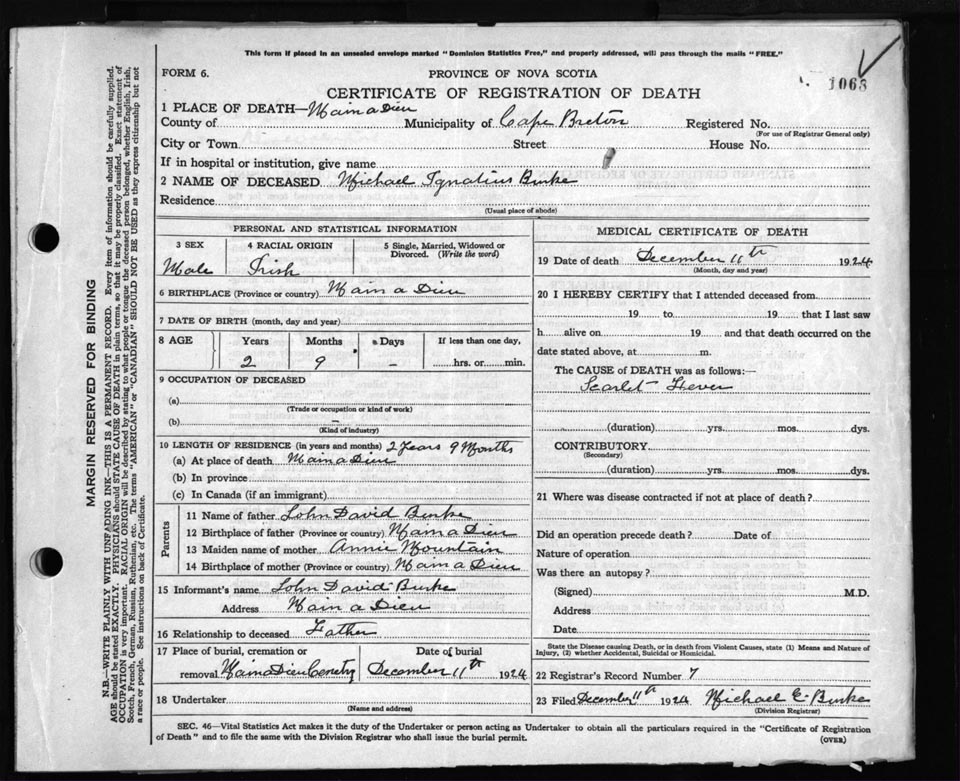 This form if placed in an unsealed envelope marked "Dominion Statistics Free," and properly addressed, will pass through the mails "FREE."
FORM 6.
PROVINCE OF NOVA SCOTIA
1063
CERTIFICATE OF REGISTRATION OF DEATH
1 PLACE OF DEATH—Main a Dieu
County of Municipality of Cape Breton Registered No.
(For use of Registrar General only)
City or Town Street House No.
If in hospital or institution, give name
2 NAME OF DECEASED Michael Ignatius Burke
Residence
(Usual place of abode)
PERSONAL AND STATISTICAL INFORMATION
3 SEX 4 RACIAL ORIGIN 5 Single, Married, Widowed or Divorced. (Write the word)
Male Irish
6 BIRTHPLACE (Province or country) Main a Dieu
7 DATE OF BIRTH (month, day and year)
8 AGE Years Months Days If less than one day,
2 9 – hrs. or min.
9 OCCUPATION OF DECEASED
(a)
(Trade or occupation or kind of work)
(b) –
(Kind of industry)
10 LENGTH OF RESIDENCE (in years and months) 2 Years 9 Months
(a) At place of death Main a Dieu
(b) In province
(c) In Canada (if an immigrant)
Parents
11 Name of father John David Burke
12 Birthplace of father (Province or country) Main a Dieu
13 Maiden name of mother Annie Mountain
14 Birthplace of mother (Province or country) Main a Dieu
15 Informant's name John David Burke
Address Main a Dieu
16 Relationship to deceased Father
17 Place of burial, cremation or removal Date of burial
Main Dieu Cemetry December 11th 1924
18 Undertaker
(Name and address)
MEDICAL CERTIFICATE OF DEATH
19 Date of death December 11th 1924
(Month, day and year)
20 I HEREBY CERTIFY that I attended deceased from
19 to 19 that I last saw
h alive on 19 and that death occurred on
date stated above, at m.
The CAUSE of DEATH was as follows:—
Scarlet Fever
(duration) yrs. mos. dys.
CONTRIBUTORY
(Secondary)
(duration) yrs. mos. dys.
21 Where was disease contracted if not at place of death?
Did an operation precede death? Date of
Nature of operation
Was there an autopsy?
(Signed) M.D.
Address
Date
State the Disease causing Death, or in death from Violent Causes, state (1) Means and Nature of
Injury, (2) whether Accidental, Suicidal or Homicidal.
22 Registrar's Record Number 7
23 Filed December 11th 1924 Michael E. Burke
(Division Registrar)
SEC. 46—Vital Statistics Act makes it the duty of the Undertaker or person acting as Undertaker to obtain all the particulars required in the "Certificate of Registration
of Death" and to file the same with the Division Registrar who shall issue the burial permit.
(OVER)
MARGIN RESERVED FOR BINDING
N.B.—WRITE PLAINLY WITH UNFADING INK—THIS IS A PERMANENT RECORD. Every item of information should be carefully supplied.
AGE should be stated EXACTLY. PHYSICIANS should STATE CAUSE OF DEATH in plain terms, so that it may be properly classified. Exact statement of
OCCUPATION is very important. RACIAL ORIGIN will be described by stating to what people or tongue the deceased person belonged, whether English, Irish,
Scotch, French, German, Russian, Ruthenian, etc. The terms "AMERICAN" or "CANADIAN" SHOULD NOT BE USED as they express citizenship but not
a race or people. See instructions on back of Certificate.